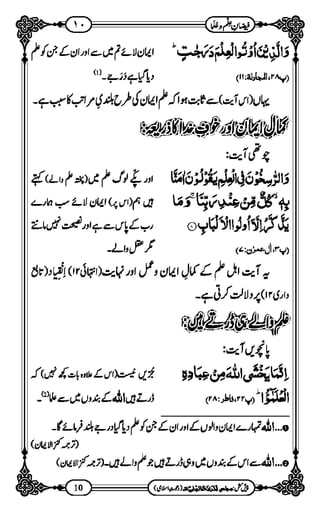 فیضانِ علم و علما
۱۰
وَالَّذِیْنَ اُوْتُوا الْعِلْمَ دَرَجٰتٍؕ
ایمان لائے تم میں سے اور ان کے جن کو علم
(پ۲۸، المجادلۃ: ۱۱)
دیا گیا ہے درجے۔(1)
یہاں (اس آیت) سے ثابت ہوا کہ علم ایمان کی طرح بلندیِ مراتب کا سبب ہے۔
کمالِ ایمان اور خوفِ خدا کا ذریعہ:
چوتھی آیت:
وَالرّٰسِخُوْنَ فِی الْعِلْمِ یَقُوْلُوْنَ اٰمَنَّا
اور پکّے لوگ علم میں (پختہ علم والے) کہتے
بِهٖۙ كُلٌّ مِّنْ عِنْدِ رَبِّنَاۚ وَمَا
ہیں ہم (اس پر) ایمان لائے سب ہمارے
یَذَّكَّرُ اِلَّاۤ اُولُوا الْاَلْبَابِ
رب کے پاس سے ہے اور نصیحت نہیں مانتے
(پ۳، اٰل عمرٰن: ۷)
مگر عقل والے۔
یہ آیت اہلِ علم کے کمالِ ایمان وعمل اور نہایت (انتہائی ۱۲)
داری ۱۲) پر دلالت کرتی ہے۔
علم والے ہی ڈرتے ہیں:
پانچویں آیت:
اِنَّمَا یَخْشَی اللّٰهَ مِنْ عِبَادِهِ
جُزیں نیست (اس کے علاوہ بات کچھ نہیں) کہ
الْعُلَمٰٓؤُاؕ (پ۲۲، فاطر: ۲۸)
ڈرتے ہیں اللہ سے اس کے بندوں میں سے علما۔(2)
1...اللہ تمہارے ایمان والوں کے اور ان کے جن کو علم دیا گیا درجے بلند فرمائے گا۔
(ترجمہ کنز الایمان)
2...اللہ سے اس کے بندوں میں وہی ڈرتے ہیں جو علم والے ہیں۔ (ترجمہ کنز الایمان)
10